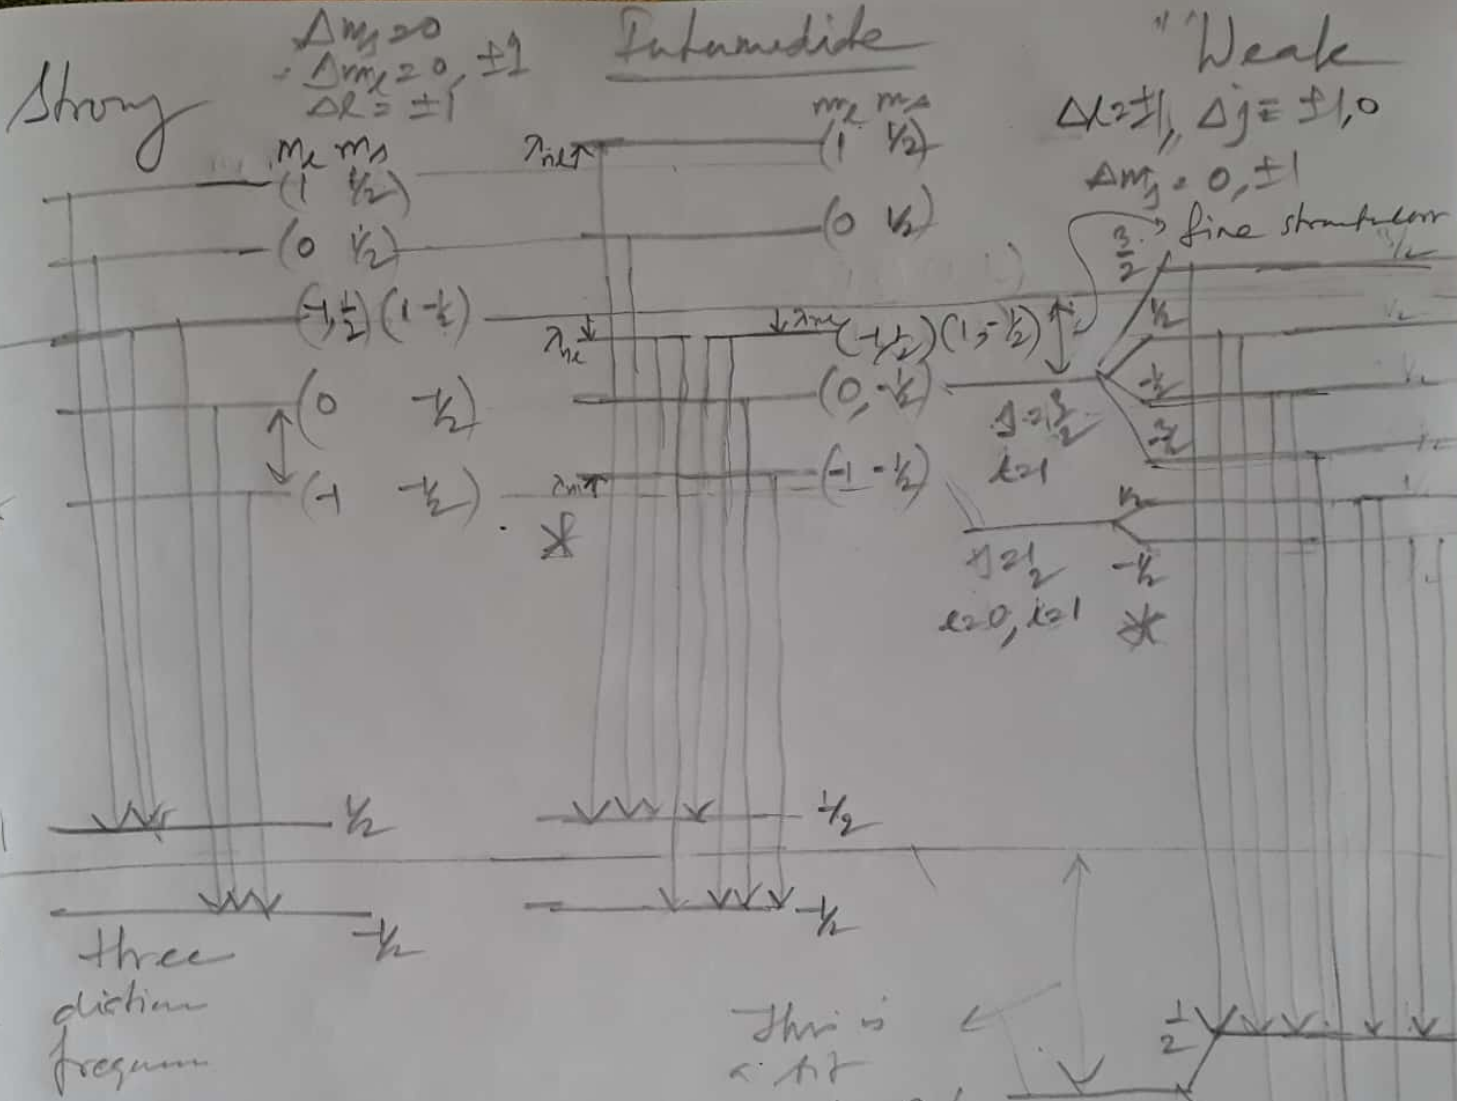 Strong
Δm_s = 0
Δm_l = 0, ±1
Δl = ±1
m_l m_s
(1 ½)
(0 ½)
(-1, ½) (1 -½)
(0 -½)
(-1 -½)
½
-½
three
distinc
frequen
Intermediate
m_l m_s
λ_nl (1 ½)
(0 ½)
λ_nl λ_nl (-1, ½) (1, -½)
(0, -½)
λ_nl (-1 -½)
½
-½
This is
"Weak
Δl = ±1, Δj = ±1, 0
Δm_j = 0, ±1
fine
3/2
½
-½
-3/2
j = 3/2
l = 1
½
-½
j = ½
l = 0, l = 1
½